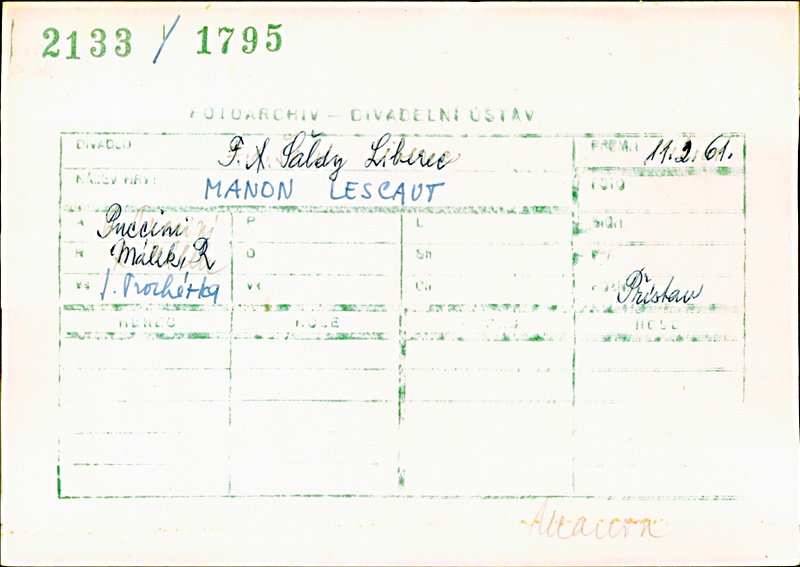 2133 / 1795
FOTOARCHIV - DIVADELNÍ ÚSTAV
DIVADLO F. X. Šaldy Liberec PREM. 11.2.61.
NÁZEV HRY: MANON LESCAUT FOTO
A Puccini P L SIGN.
R Málek, R O Sh
Vs J. Procházka Vt Ch Přístav
HEREC ROLE ROLE